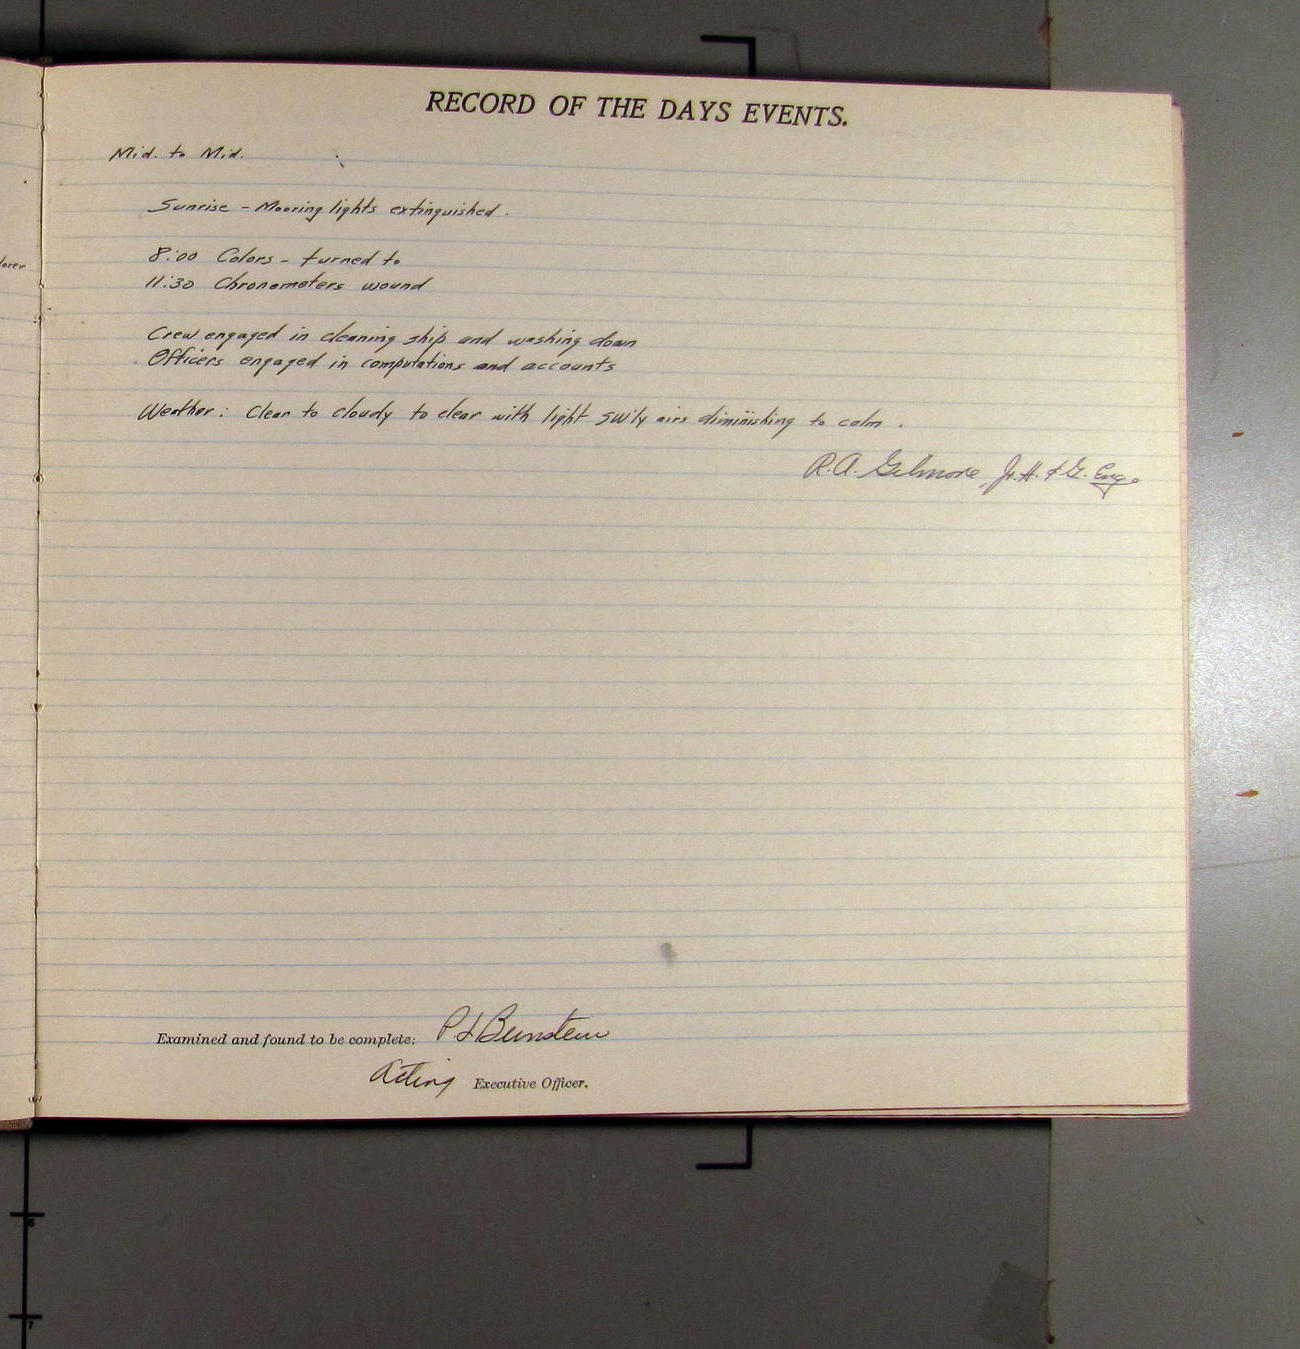 RECORD OF THE DAYS EVENTS.
Mid. to Mid.
Sunrise - Mooring lights extinguished.
8:00 Colors - turned to
11:30 Chronometers wound
Crew engaged in cleaning ship and washing down
Officers engaged in computations and accounts
Weather: Clear to cloudy to clear with light SW'ly airs diminishing to calm.
R.A. Gilmore, Jr. H. & G. Eng.
Examined and found to be complete: P. L. Bernstein
Acting Executive Officer.
6
7